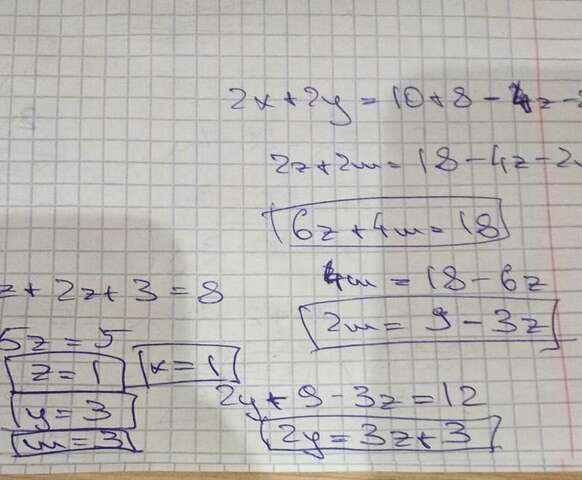 2x+2y=10+8-4z-2
2z+2m=18-4z-2
6z+4m=18
4m=18-6z
2m=9-3z
2y+9-3z=12
2y=3z+3
z+2z+3=8
5z=5
z=1 x=1
y=3
m=3